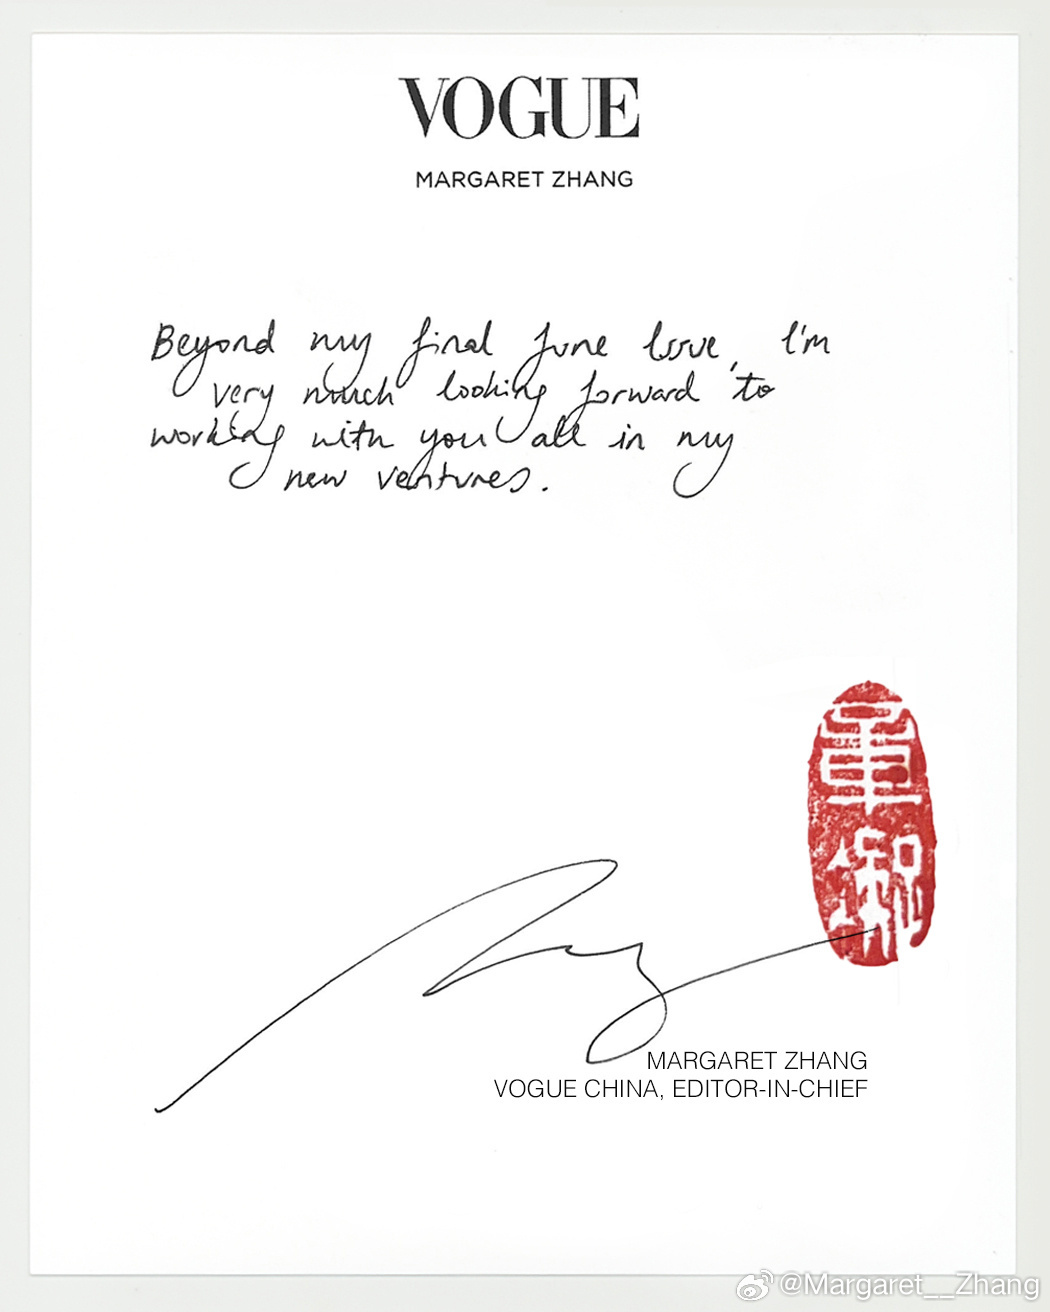 VOGUE
MARGARET ZHANG
Beyond my final June Issue, I'm
very much looking forward to
working with you all in my
new ventures.
MARGARET ZHANG
VOGUE CHINA, EDITOR-IN-CHIEF
@Margaret__Zhang